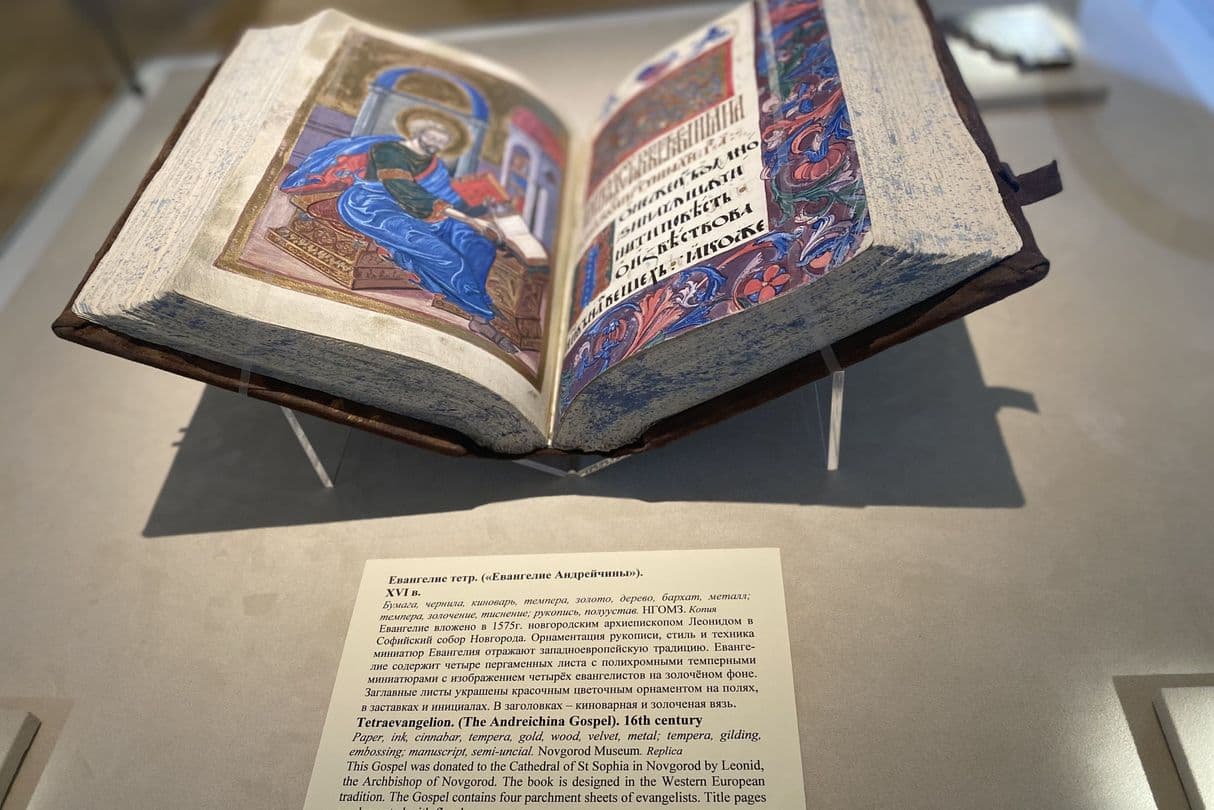 ПОВѢСТЬ
ВЕЩЕХЪ: ꙖКОЖЕ
Евангелие тетр. («Евангелие Андрейчины»).
XVI в.
Бумага, чернила, киноварь, темпера, золото, дерево, бархат, металл;
темпера, золочение, тиснение; рукопись, полуустав. НГОМЗ. Копия
Евангелие вложено в 1575г. новгородским архиепископом Леонидом в
Софийский собор Новгорода. Орнаментация рукописи, стиль и техника
миниатюр Евангелия отражают западноевропейскую традицию. Еванге-
лие содержит четыре пергаменных листа с полихромными темперными
миниатюрами с изображением четырёх евангелистов на золочёном фоне.
Заглавные листы украшены красочным цветочным орнаментом на полях,
в заставках и инициалах. В заголовках – киноварная и золоченая вязь.
Tetraevangelion. (The Andreichina Gospel). 16th century
Paper, ink, cinnabar, tempera, gold, wood, velvet, metal; tempera, gilding,
embossing; manuscript, semi-uncial. Novgorod Museum. Replica
This Gospel was donated to the Cathedral of St Sophia in Novgorod by Leonid,
the Archbishop of Novgorod. The book is designed in the Western European
tradition. The Gospel contains four parchment sheets of evangelists. Title pages